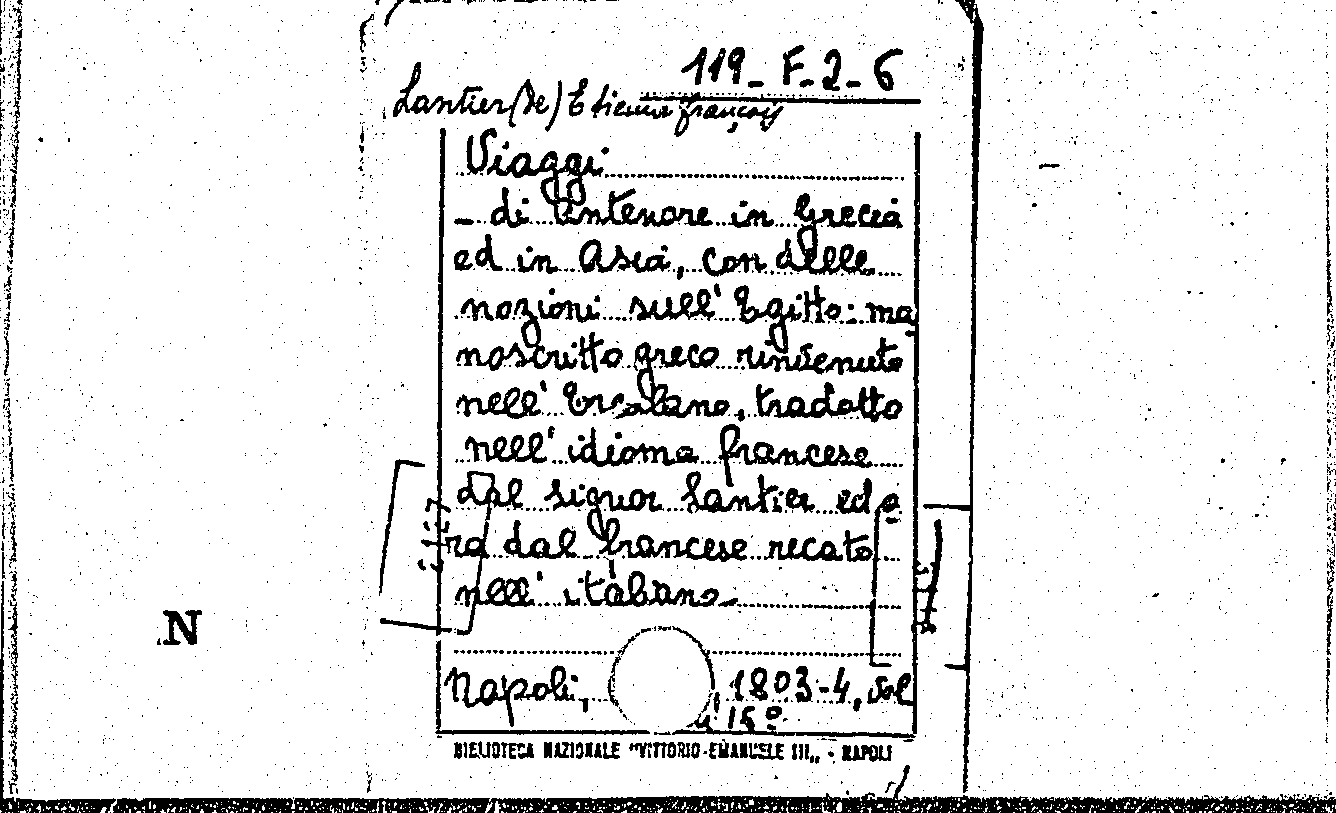 119-F-2-6
Lantier (de) Etienne françois
Viaggi
- di Antenore in Grecia
ed in Asia, con delle
nozioni sull' Egitto: ma
noscritto greco rinvenuto
nell' Ercolano, tradotto
nell' idioma francese
dal signor Lantier ed o
ra dal francese recato
nell' italiano-
Napoli, , 1803-4, vol
in 16º
BIBLIOTECA NAZIONALE "VITTORIO EMANUELE III„ - NAPOLI
N